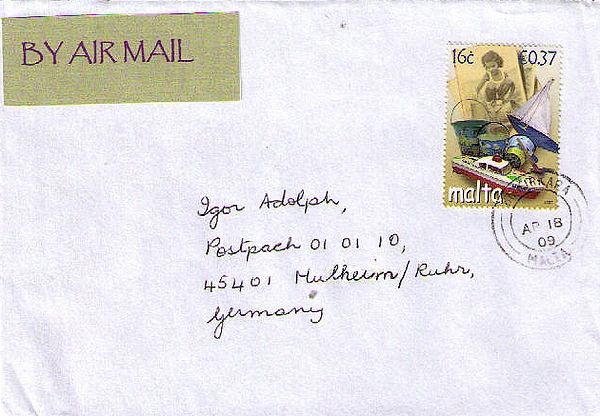 BY AIR MAIL
16ċ €0.37
malta
BIRKARA
AP 18
09
MALTA
Igor Adolph,
Postpach 01 01 10,
45401 Mulheim/Ruhr,
Germany